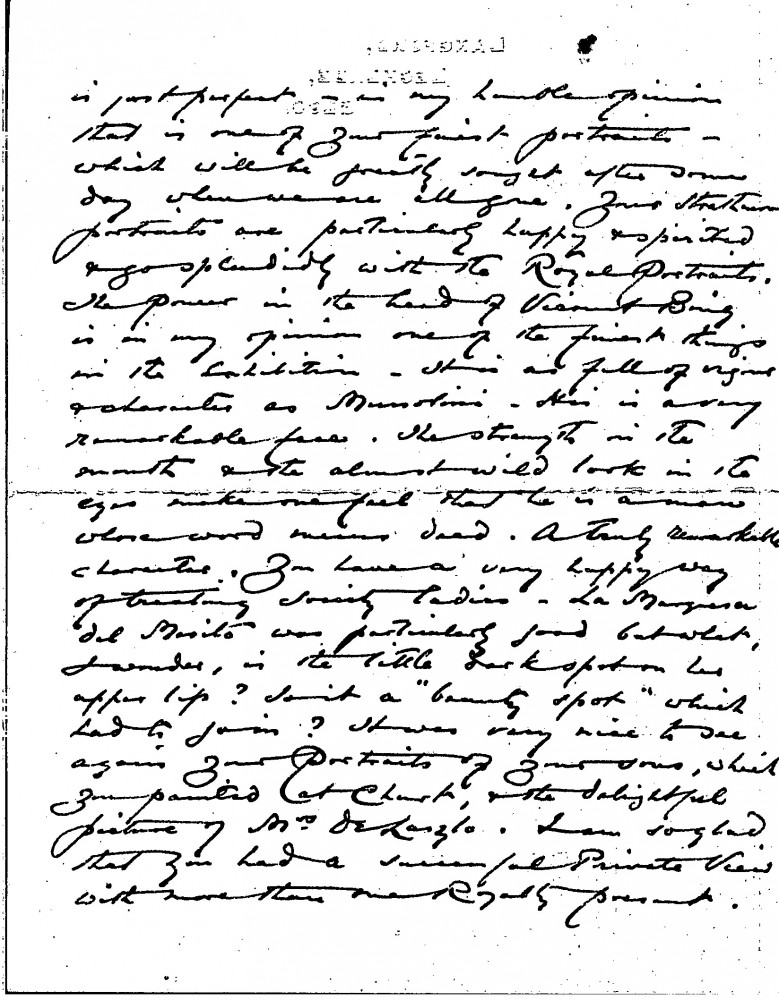 LANGFORD,
LECHLADE,
GLOS.
is just perfect – in my humble opinion
that is one of your finest portraits –
which will be greatly sought after some
day when we are all gone. Your Strathmore
portraits are particularly happy & spirited
& go splendidly with the Royal Portraits.
The power in the head of Viscount Byng
is in my opinion one of the finest things
in the Exhibition – It is as full of vigour
& character as Mussolini – His is a very
remarkable face. The strength in the
mouth & the almost wild look in the
eyes make one feel that he is a man
whose word means deed. A truly remarkable
character. You have a very happy way
of treating Society ladies – La Marquesa
del Merito was particularly good but what,
I wonder, is the little dark spot on her
upper lip? Is it a "beauty spot" which
had to go in? It was very nice to see
again your Portraits of your sons, which
you painted at Chirk, & the delightful
picture of Mrs De Laszlo. I am so glad
that you had a successful Private View
with more than one Royalty present.